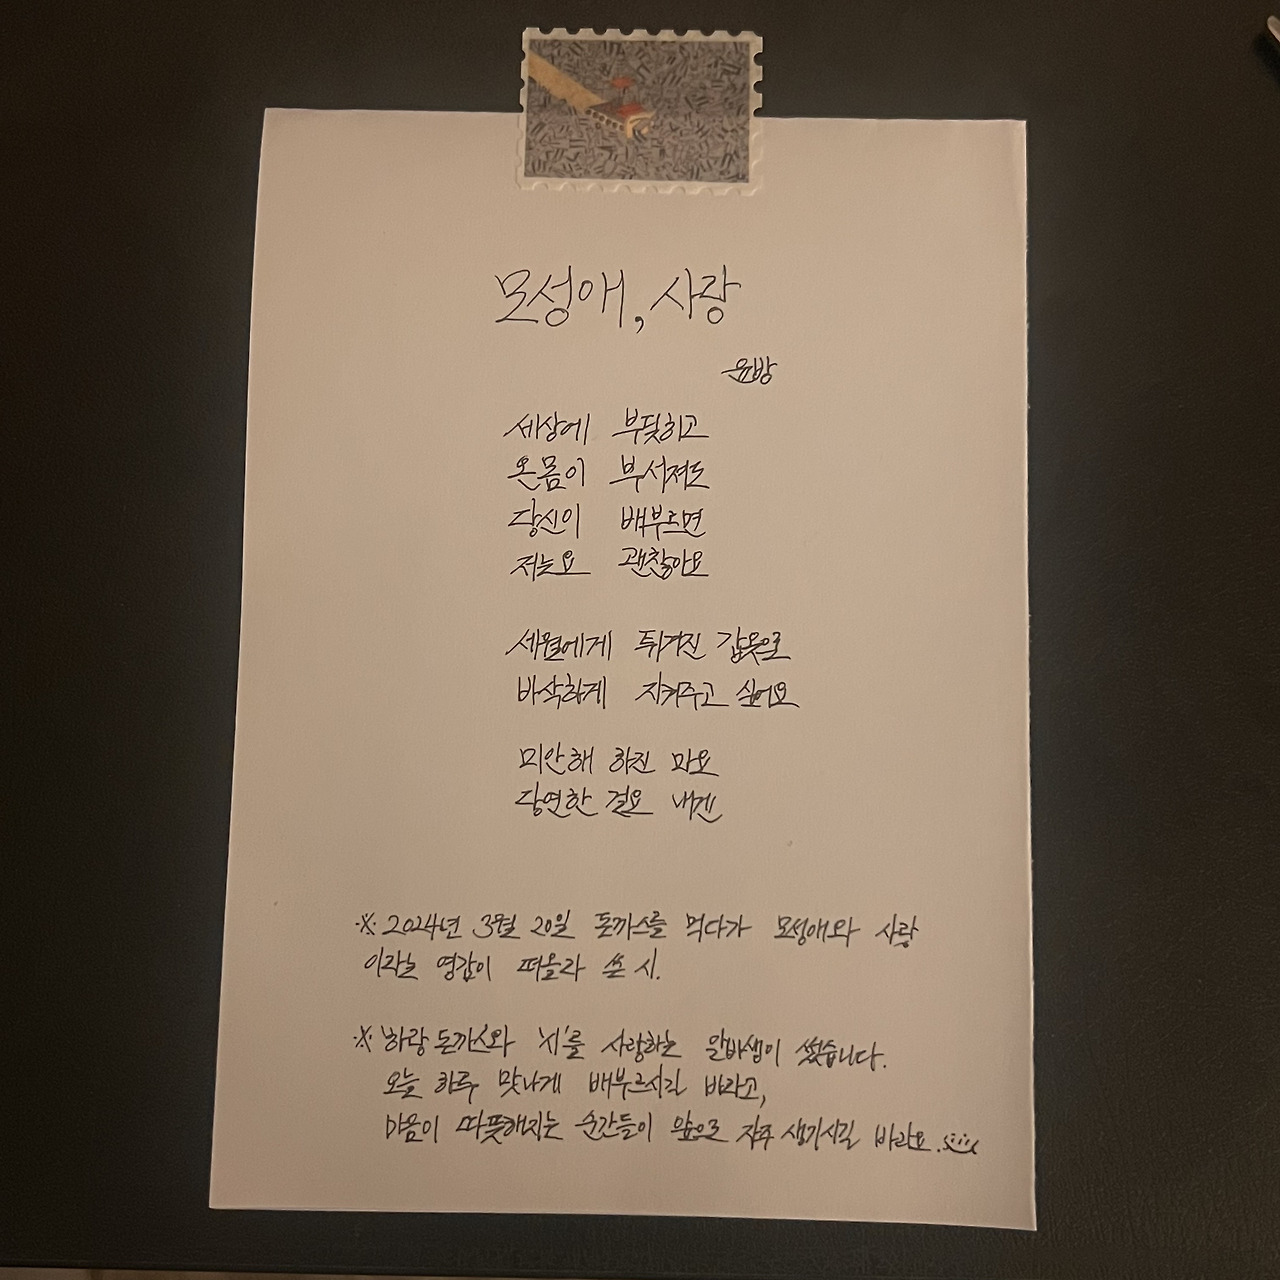 모성애, 사랑
윤방
세상에 부딪히고
온몸이 부서져도
당신이 배부르면
저는요 괜찮아요
세월에게 튀겨진 갑옷으로
바삭하게 지켜주고 싶어요
미안해 하진 마요
당연한 걸요 내겐
※ 2024년 3월 20일 돈까스를 먹다가 모성애와 사랑
이라는 영감이 떠올라 쓴 시.
※ '하랑 돈까스'와 '시'를 사랑하는 알바생이 썼습니다.
오늘 하루 맛나게 배부르시길 바라고,
마음이 따뜻해지는 순간들이 앞으로 자주 생기시길 바라요.